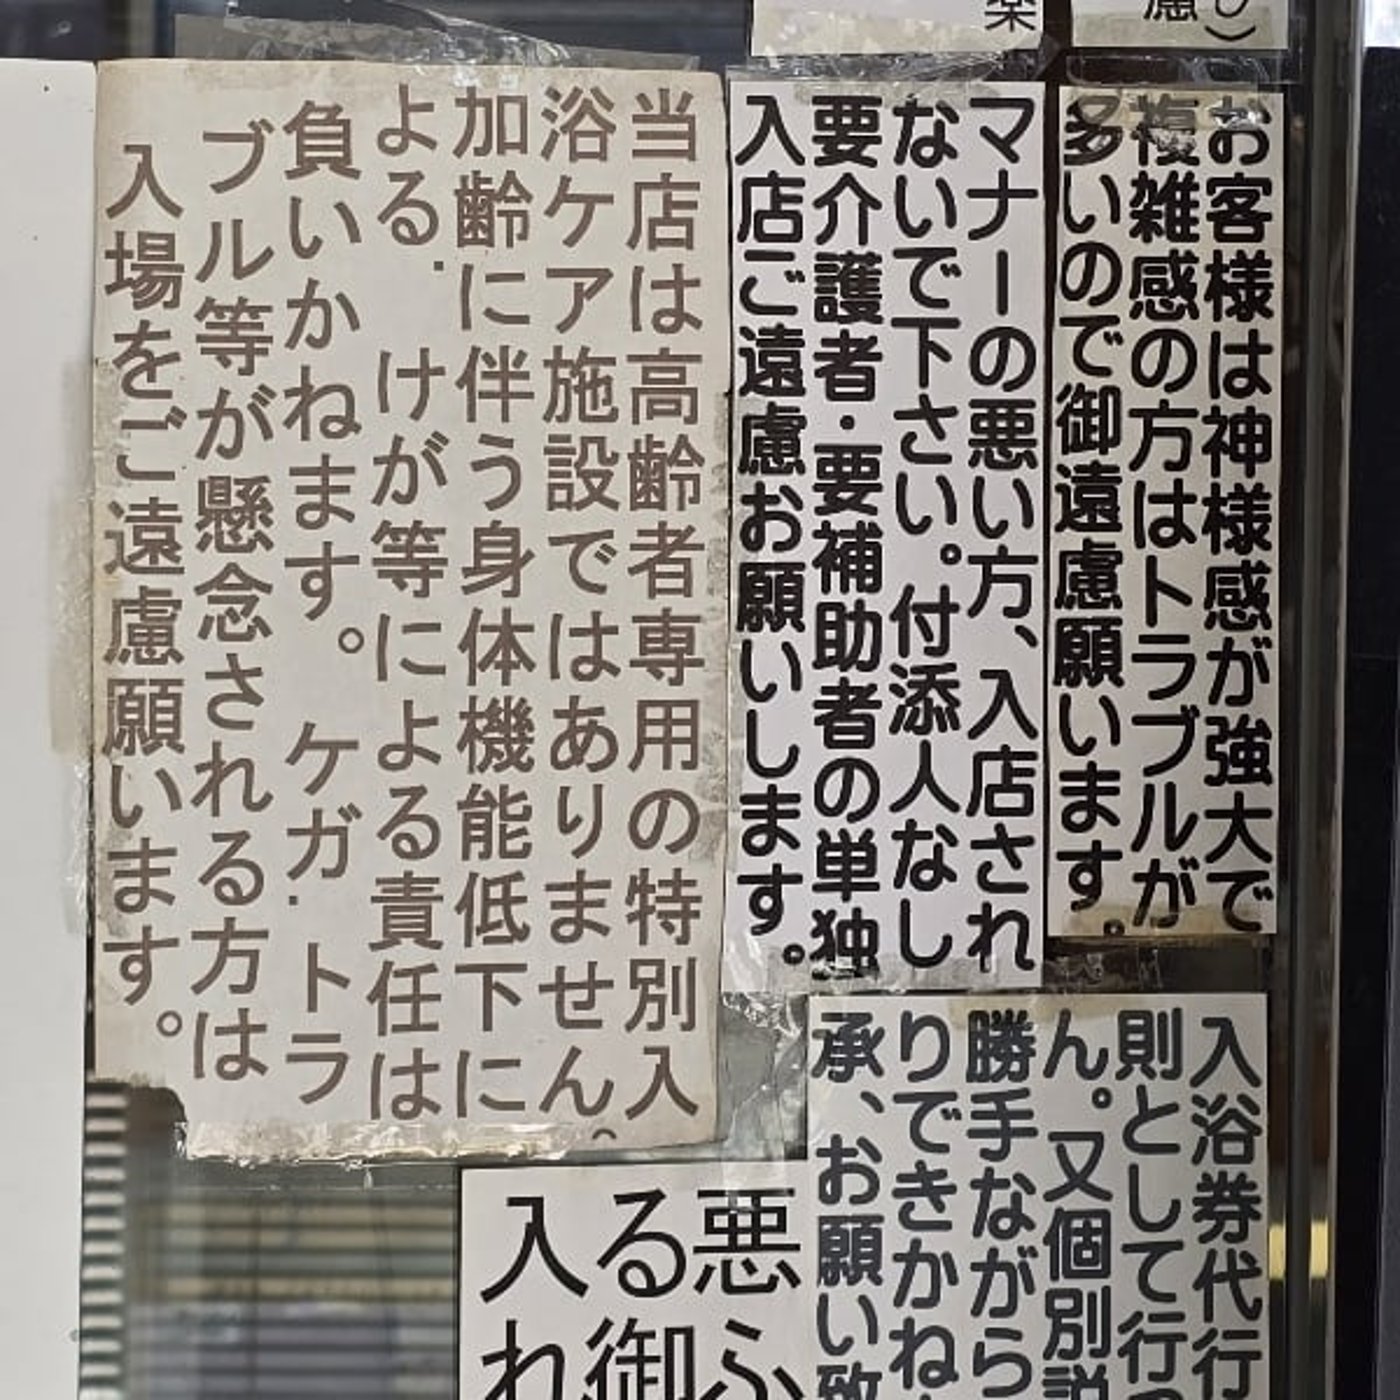 楽
慮
し)
お客様は神様感が強大で
複雑感の方はトラブルが
多いので御遠慮願います。
マナーの悪い方、入店され
ないで下さい。付添人なし
要介護者・要補助者の単独
入店ご遠慮お願いします。
当店は高齢者専用の特別入
浴ケア施設ではありません。
加齢に伴う身体機能低下に
よる. けが等による責任は
負いかねます。 ケガ.トラ
ブル等が懸念される方は
入場をご遠慮願います。
入浴券代行
則として行
ん。又個別説
勝手ながら
りできかね
承、お願い致
悪ふ
る御
入れ